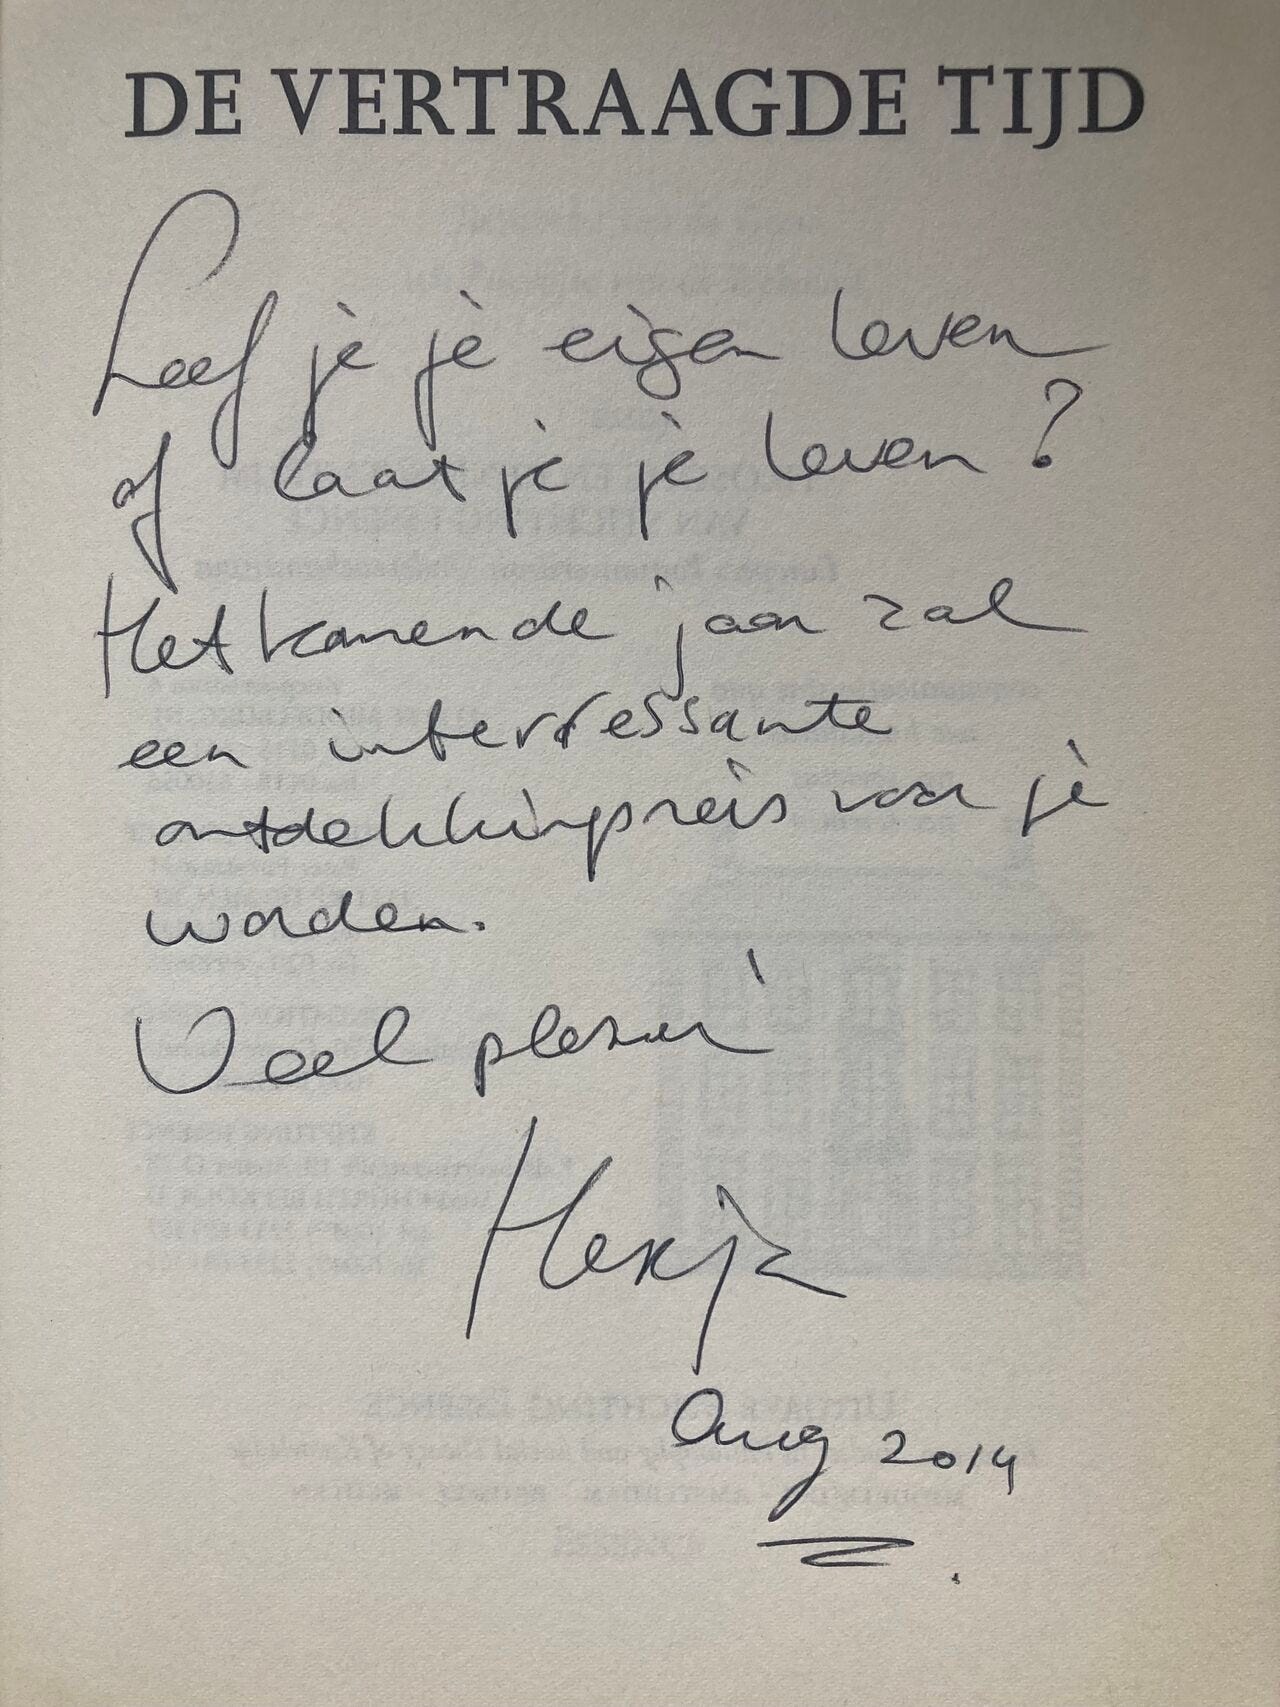 DE VERTRAAGDE TIJD
Leef je je eigen leven
of laat je je leven?
Het komende jaar zal
een interressante
ontdekkingsreis voor je
worden.
Veel plezier
Aug 2014